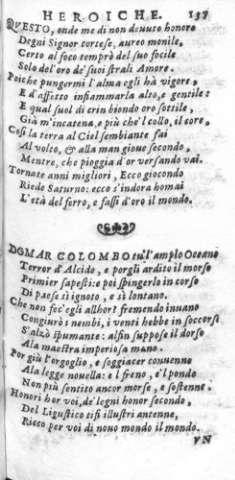 HEROICHE. 137
QVESTO, onde me di non deuuto honore
Degni Signor cortese, aureo monile,
Certo al foco temprò del suo focile
Solo del'oro de' suoi strali Amore.
Poiche pungermi l'alma egli hà vigore,
E d'affetto infiammarla alto, e gentile:
E qual suol di crin biondo oro sottile,
Già m'incatena, e più che'l collo, il core,
Così la terra al Ciel sembiante fai
Al volto, & alla man gioue secondo,
Mentre, che pioggia d'or versando vai.
Tornate anni migliori, Ecco giocondo
Riede Saturno: ecco s'indora homai
L'età del ferro, e fassi d'oro il mondo.
DOMAR COLOMBO tu l'amplo Oceano
Terror d'Alcido, e porgli ardito il morso
Primier sapesti: poi spingerlo in corso
Di paesi sì ignoto, e sì lontano.
Che non fec'egli allhor? fremendo inuano
Congiurò i nembi, i venti hebbe in soccorso
S'alzò spumante: alfin suppose il dorso
Ala maestra imperiosa mano.
Por giù l'orgoglio, e soggiacer conuenne
Ala legge nouella: e'l freno, e'l pondo
Non più sentito ancor morse, e sostenne.
Honori hor voi, de' legni honor secondo,
Del Ligustico tifi illustri antenne,
Ricco per voi di nouo mondo il mondo.
VN